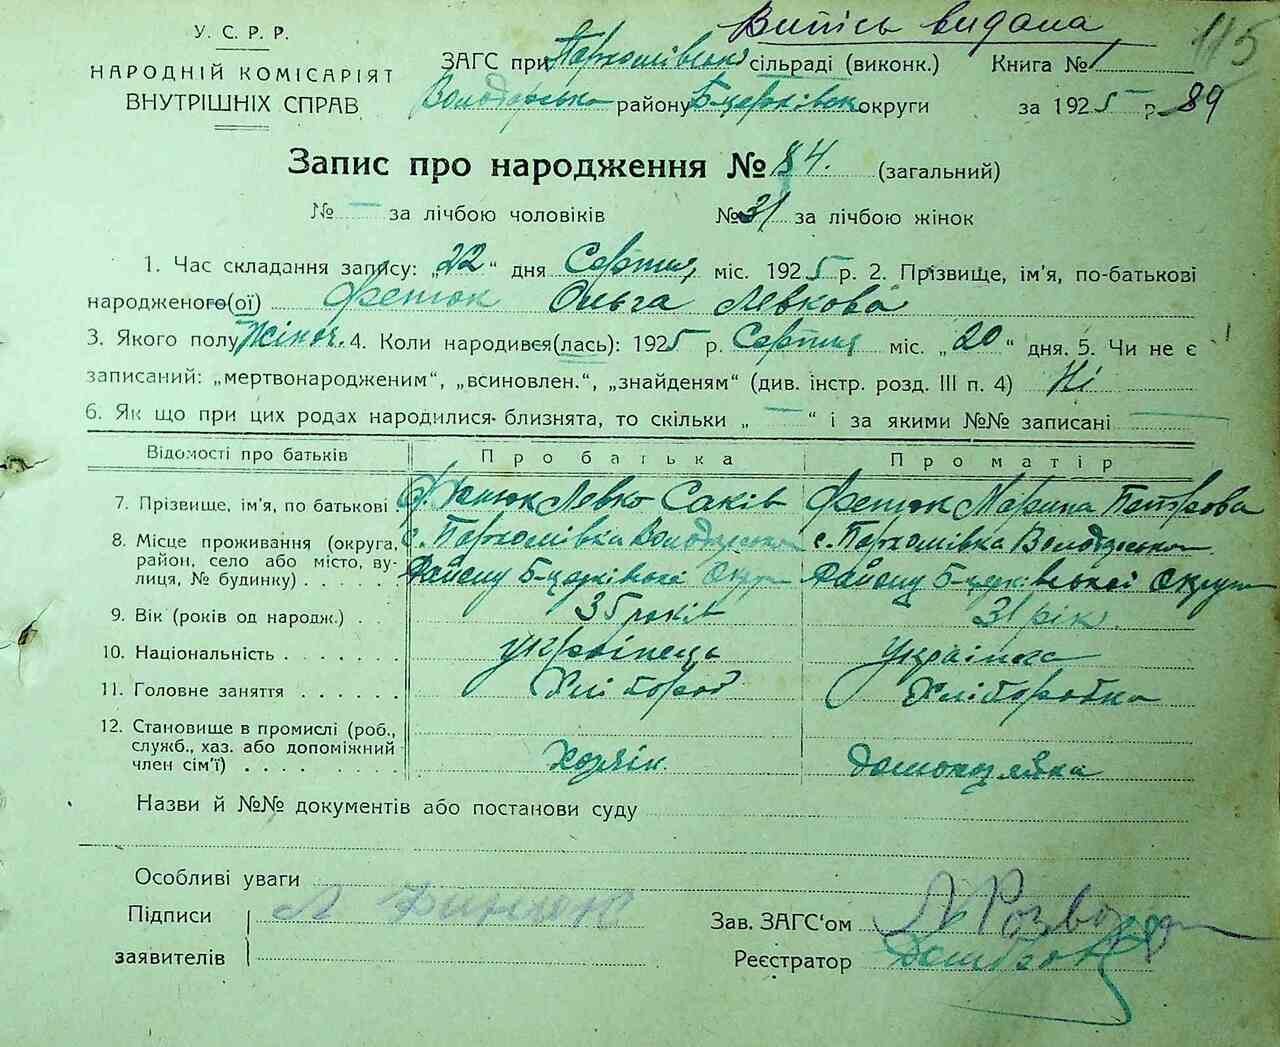 Випись видана
115
У. С. Р. Р.
НАРОДНІЙ КОМІСАРІЯТ
ВНУТРІШНІХ СПРАВ
ЗАГС при Пархомівські сільраді (виконк.) Книга № 1
Володарсько району Б-церківськ округи за 1925 р. 89
Запис про народження № 84. (загальний)
№ — за лічбою чоловіків № 31 за лічбою жінок
1. Час складання запису: „22“ дня Серпня, міс. 1925 р. 2. Прізвище, ім'я, по-батькові
народженого(ої) Фетюк Ольга Левкова
3. Якого полу Жіноч. 4. Коли народився(лась): 1925 р. Серпня міс. „20“ дня. 5. Чи не є
записаний: „мертвонародженим“, „всиновлен.“, „знайденям“ (див. інстр. розд. III п. 4) Ні
6. Як що при цих родах народилися близнята, то скільки „ — “ і за якими №№ записані —
Відомості про батьків Про батька Про матір
7. Прізвище, ім'я, по батькові Фетюк Левко Саків Фетюк Марина Петрова
8. Місце проживання (округа, с. Пархомівка Володарсько с. Пархомівка Володарсько
район, село або місто, ву-
лиця, № будинку) . . . . . Району Б-церківської Округи Району Б-церківської Округи
9. Вік (років од народж.) . 35 років 31 рік.
10. Національність . . . . . . українець Українка
11. Головне заняття . . . . . Хлібороб Хліборобка
12. Становище в промислі (роб.,
служб., хаз. або допоміжний
член сім'ї) . . . . . . . . Хозяїн. домохазяйка
Назви й №№ документів або постанови суду
Особливі уваги
Підписи Л
заявителів
Зав. ЗАГС'ом
Реєстратор